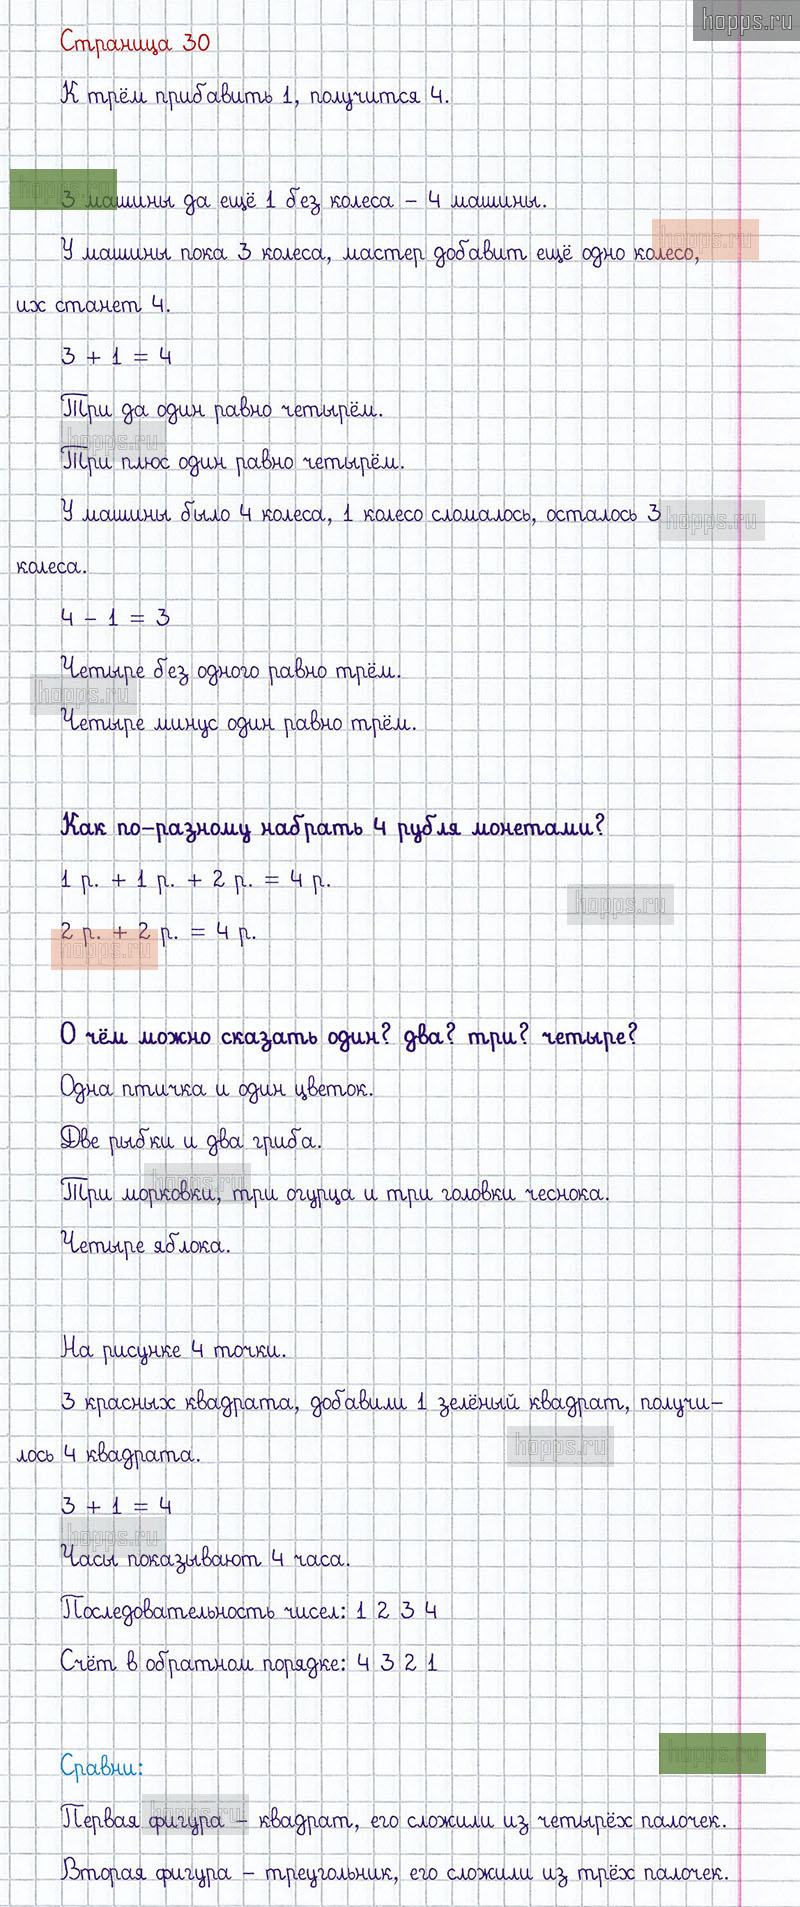 hopps.ru
Страница 30
К трём прибавить 1, получится 4.
hopps.ru
3 машины да ещё 1 без колеса – 4 машины.
hopps.ru
У машины пока 3 колеса, мастер добавит ещё одно колесо,
их станет 4.
3 + 1 = 4
Три да один равно четырём.
hopps.ru
Три плюс один равно четырём.
У машины было 4 колеса, 1 колесо сломалось, осталось 3
hopps.ru
колеса.
4 – 1 = 3
Четыре без одного равно трём.
hopps.ru
Четыре минус один равно трём.
Как по-разному набрать 4 рубля монетами?
1 р. + 1 р. + 2 р. = 4 р.
hopps.ru
2 р. + 2 р. = 4 р.
hopps.ru
О чём можно сказать один? два? три? четыре?
Одна птичка и один цветок.
Две рыбки и два гриба.
hopps.ru
Три морковки, три огурца и три головки чеснока.
Четыре яблока.
На рисунке 4 точки.
3 красных квадрата, добавили 1 зелёный квадрат, получи-
hopps.ru
лось 4 квадрата.
3 + 1 = 4
hopps.ru
Часы показывают 4 часа.
Последовательность чисел: 1 2 3 4
Счёт в обратном порядке: 4 3 2 1
hopps.ru
Сравни:
hopps.ru
Первая фигура – квадрат, его сложили из четырёх палочек.
Вторая фигура – треугольник, его сложили из трёх палочек.